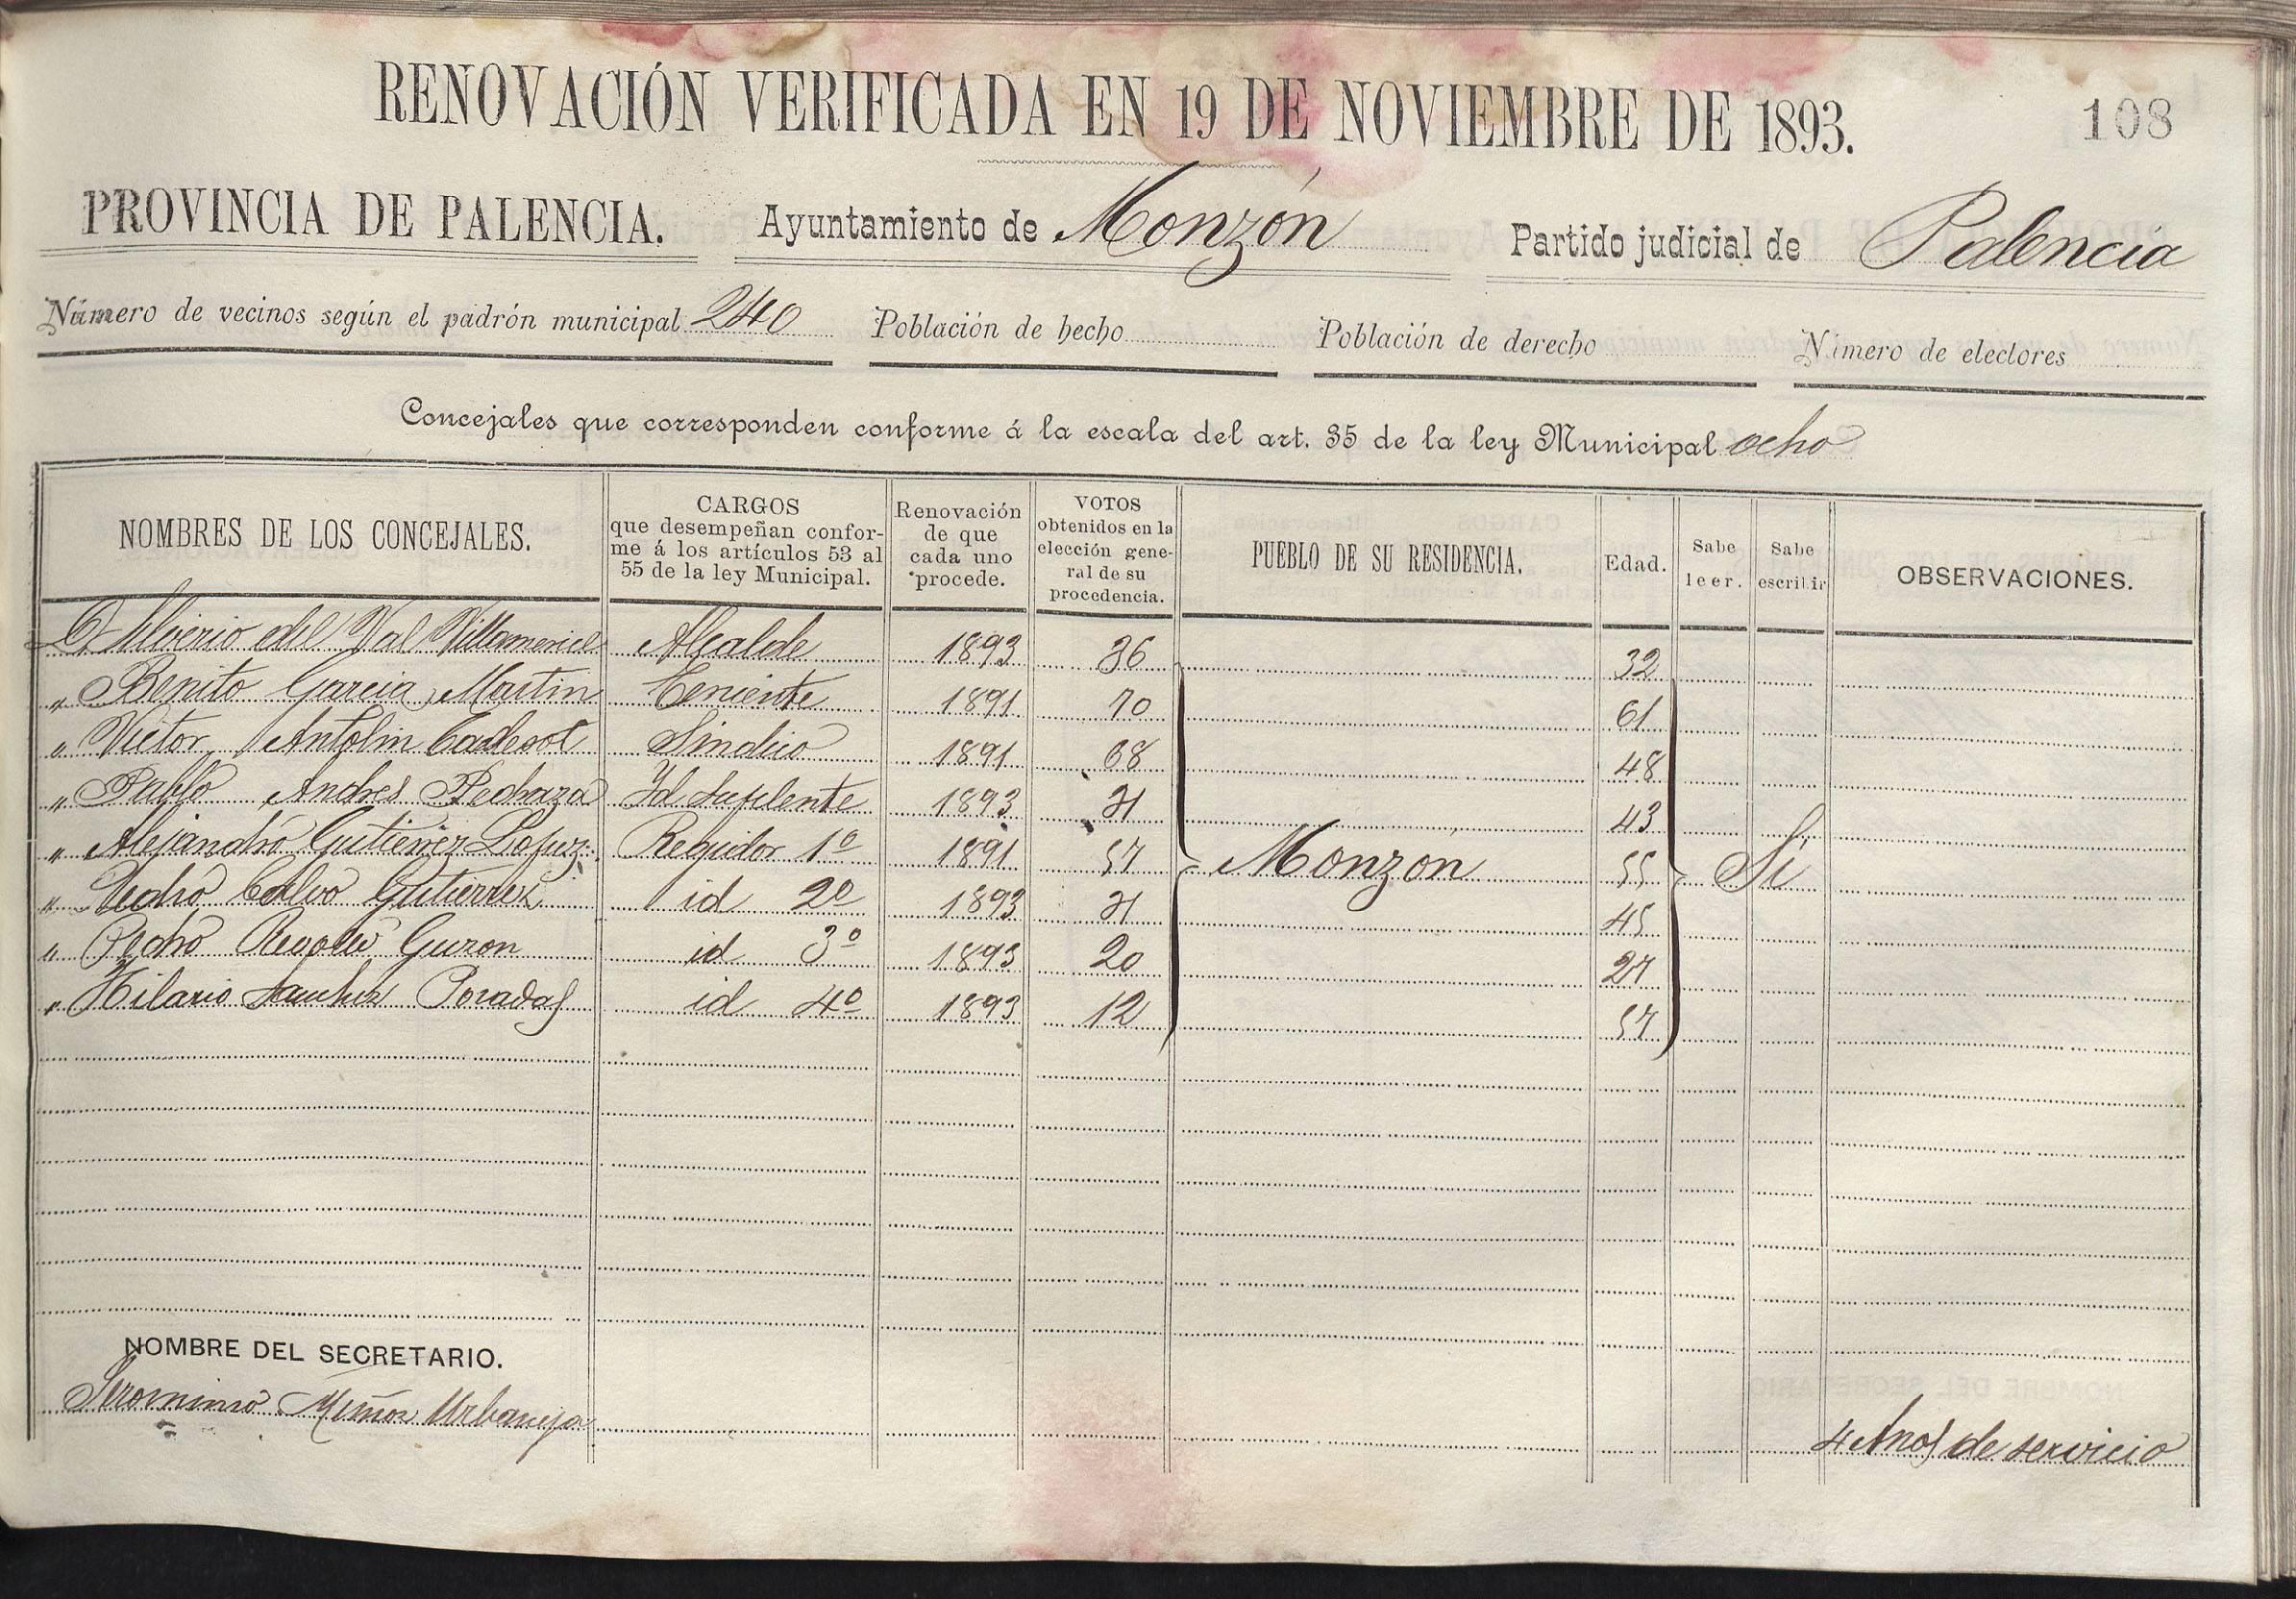 RENOVACIÓN VERIFICADA EN 19 DE NOVIEMBRE DE 1893.
108
PROVINCIA DE PALENCIA. Ayuntamiento de Monzón Partido judicial de Palencia
Número de vecinos según el padrón municipal 240 Población de hecho Población de derecho Número de electores
Concejales que corresponden conforme á la escala del art. 35 de la ley Municipal ocho
NOMBRES DE LOS CONCEJALES. CARGOS que desempeñan conforme á los artículos 53 al 55 de la ley Municipal. Renovación de que cada uno procede. VOTOS obtenidos en la elección general de su procedencia. PUEBLO DE SU RESIDENCIA. Edad. Sabe leer. Sabe escribir OBSERVACIONES.
D. Silverio del Val Villameriel Alcalde 1893 36 32
" Benito Garcia Martin Teniente 1891 70 61
" Victor Antolin Sindico 1891 68 48
" Pablo Andres Pedraza Id Suplente 1893 21 43
" Alejandro Gutierrez Lopez Regidor 1º 1891 57 Monzon 55 Si
" Pedro Calvo Gutierrez id 2º 1893 21 45
" Pedro Guzon id 3º 1893 20 27
" Hilario Sanchez Posadas id 4º 1893 12 57
NOMBRE DEL SECRETARIO.
Geronimo Muñoz Urbaneja 4 Años de servicio